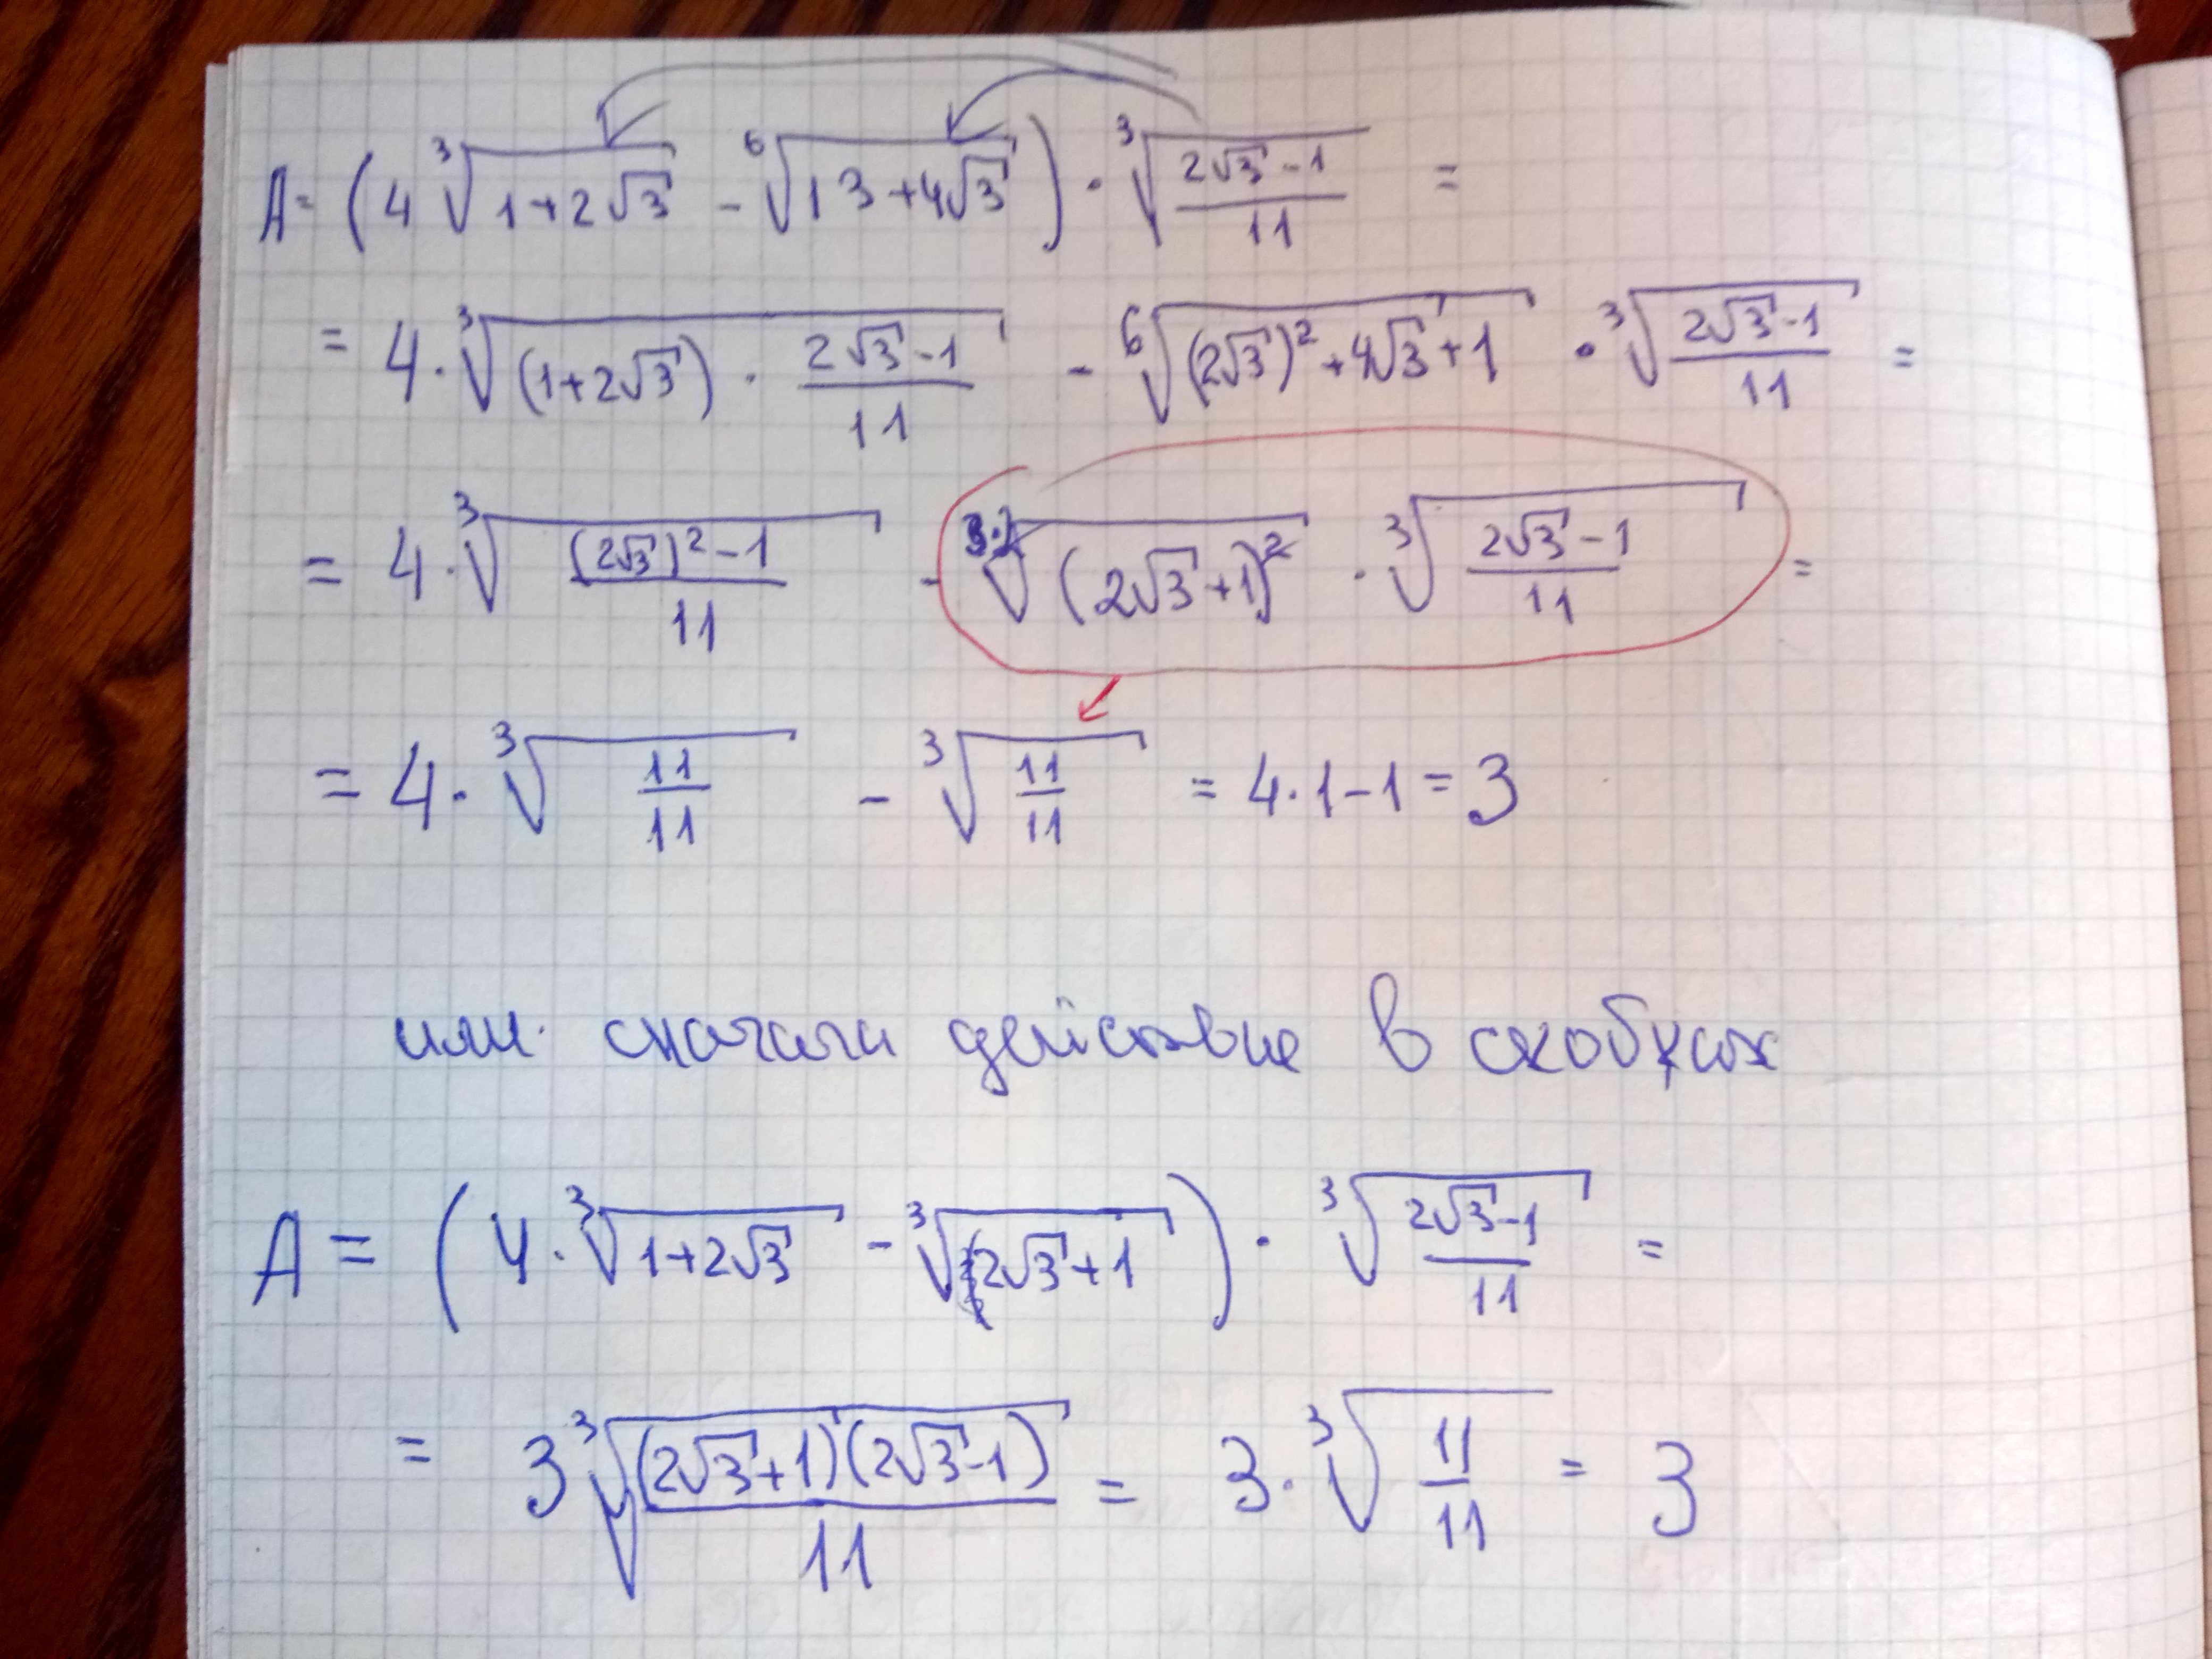 A = (4 ∛(1+2√3) - ⁶√(13+4√3)) · ∛((2√3-1)/11) =
= 4 · ∛((1+2√3) · (2√3-1)/11) - ⁶√((2√3)²+4√3+1) · ∛((2√3-1)/11) =
= 4 · ∛(((2√3)²-1)/11) - ³·²√((2√3+1)²) · ∛((2√3-1)/11) =
= 4 · ∛(11/11) - ∛(11/11) = 4·1-1 = 3
или сначала действие в скобках
A = (4 · ∛(1+2√3) - ∛(2√3+1)) · ∛((2√3-1)/11) =
= 3 ∛((2√3+1)(2√3-1)/11) = 3 · ∛(11/11) = 3